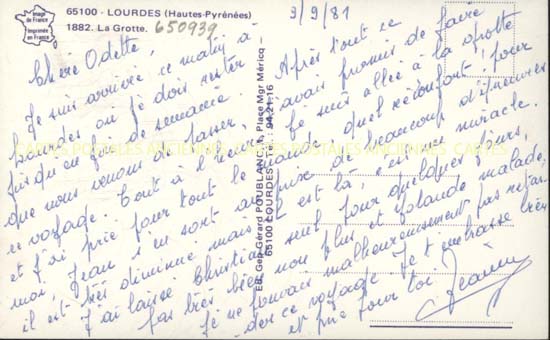 Image de France
Imprimée en France
65100 - LOURDES (Hautes-Pyrénées)
1882. La Grotte.
650939
9/9/81
Chère Odette,
Je suis arrivée ce matin à
Lourdes où je dois rester
jusqu'en fin de semaine.
Après tout ce
que nous venons de passer
j'avais promis de faire
ce voyage. Tout à l'heure
je suis allée à la grotte
et j'ai prié pour tout le monde
quel réconfort pour
moi, Jean s'en sort au prix de beaucoup d'épreuves
il est très diminué mais il est là, c'est un miracle.
J'ai laissé Christian seul pour quelques jours,
pas très bien non plus et Yolande malade,
je ne pouvais malheureusement pas
ce voyage. Je t'embrasse bien
et prie pour toi. Jeanine
Edt. Gep Gérard POUBLANC, 1, Place Mgr Méricq -
65100 LOURDES - TEL. : 94.21.16
CARTES POSTALES ANCIENNES CARTES POSTALES ANCIENNES CARTES